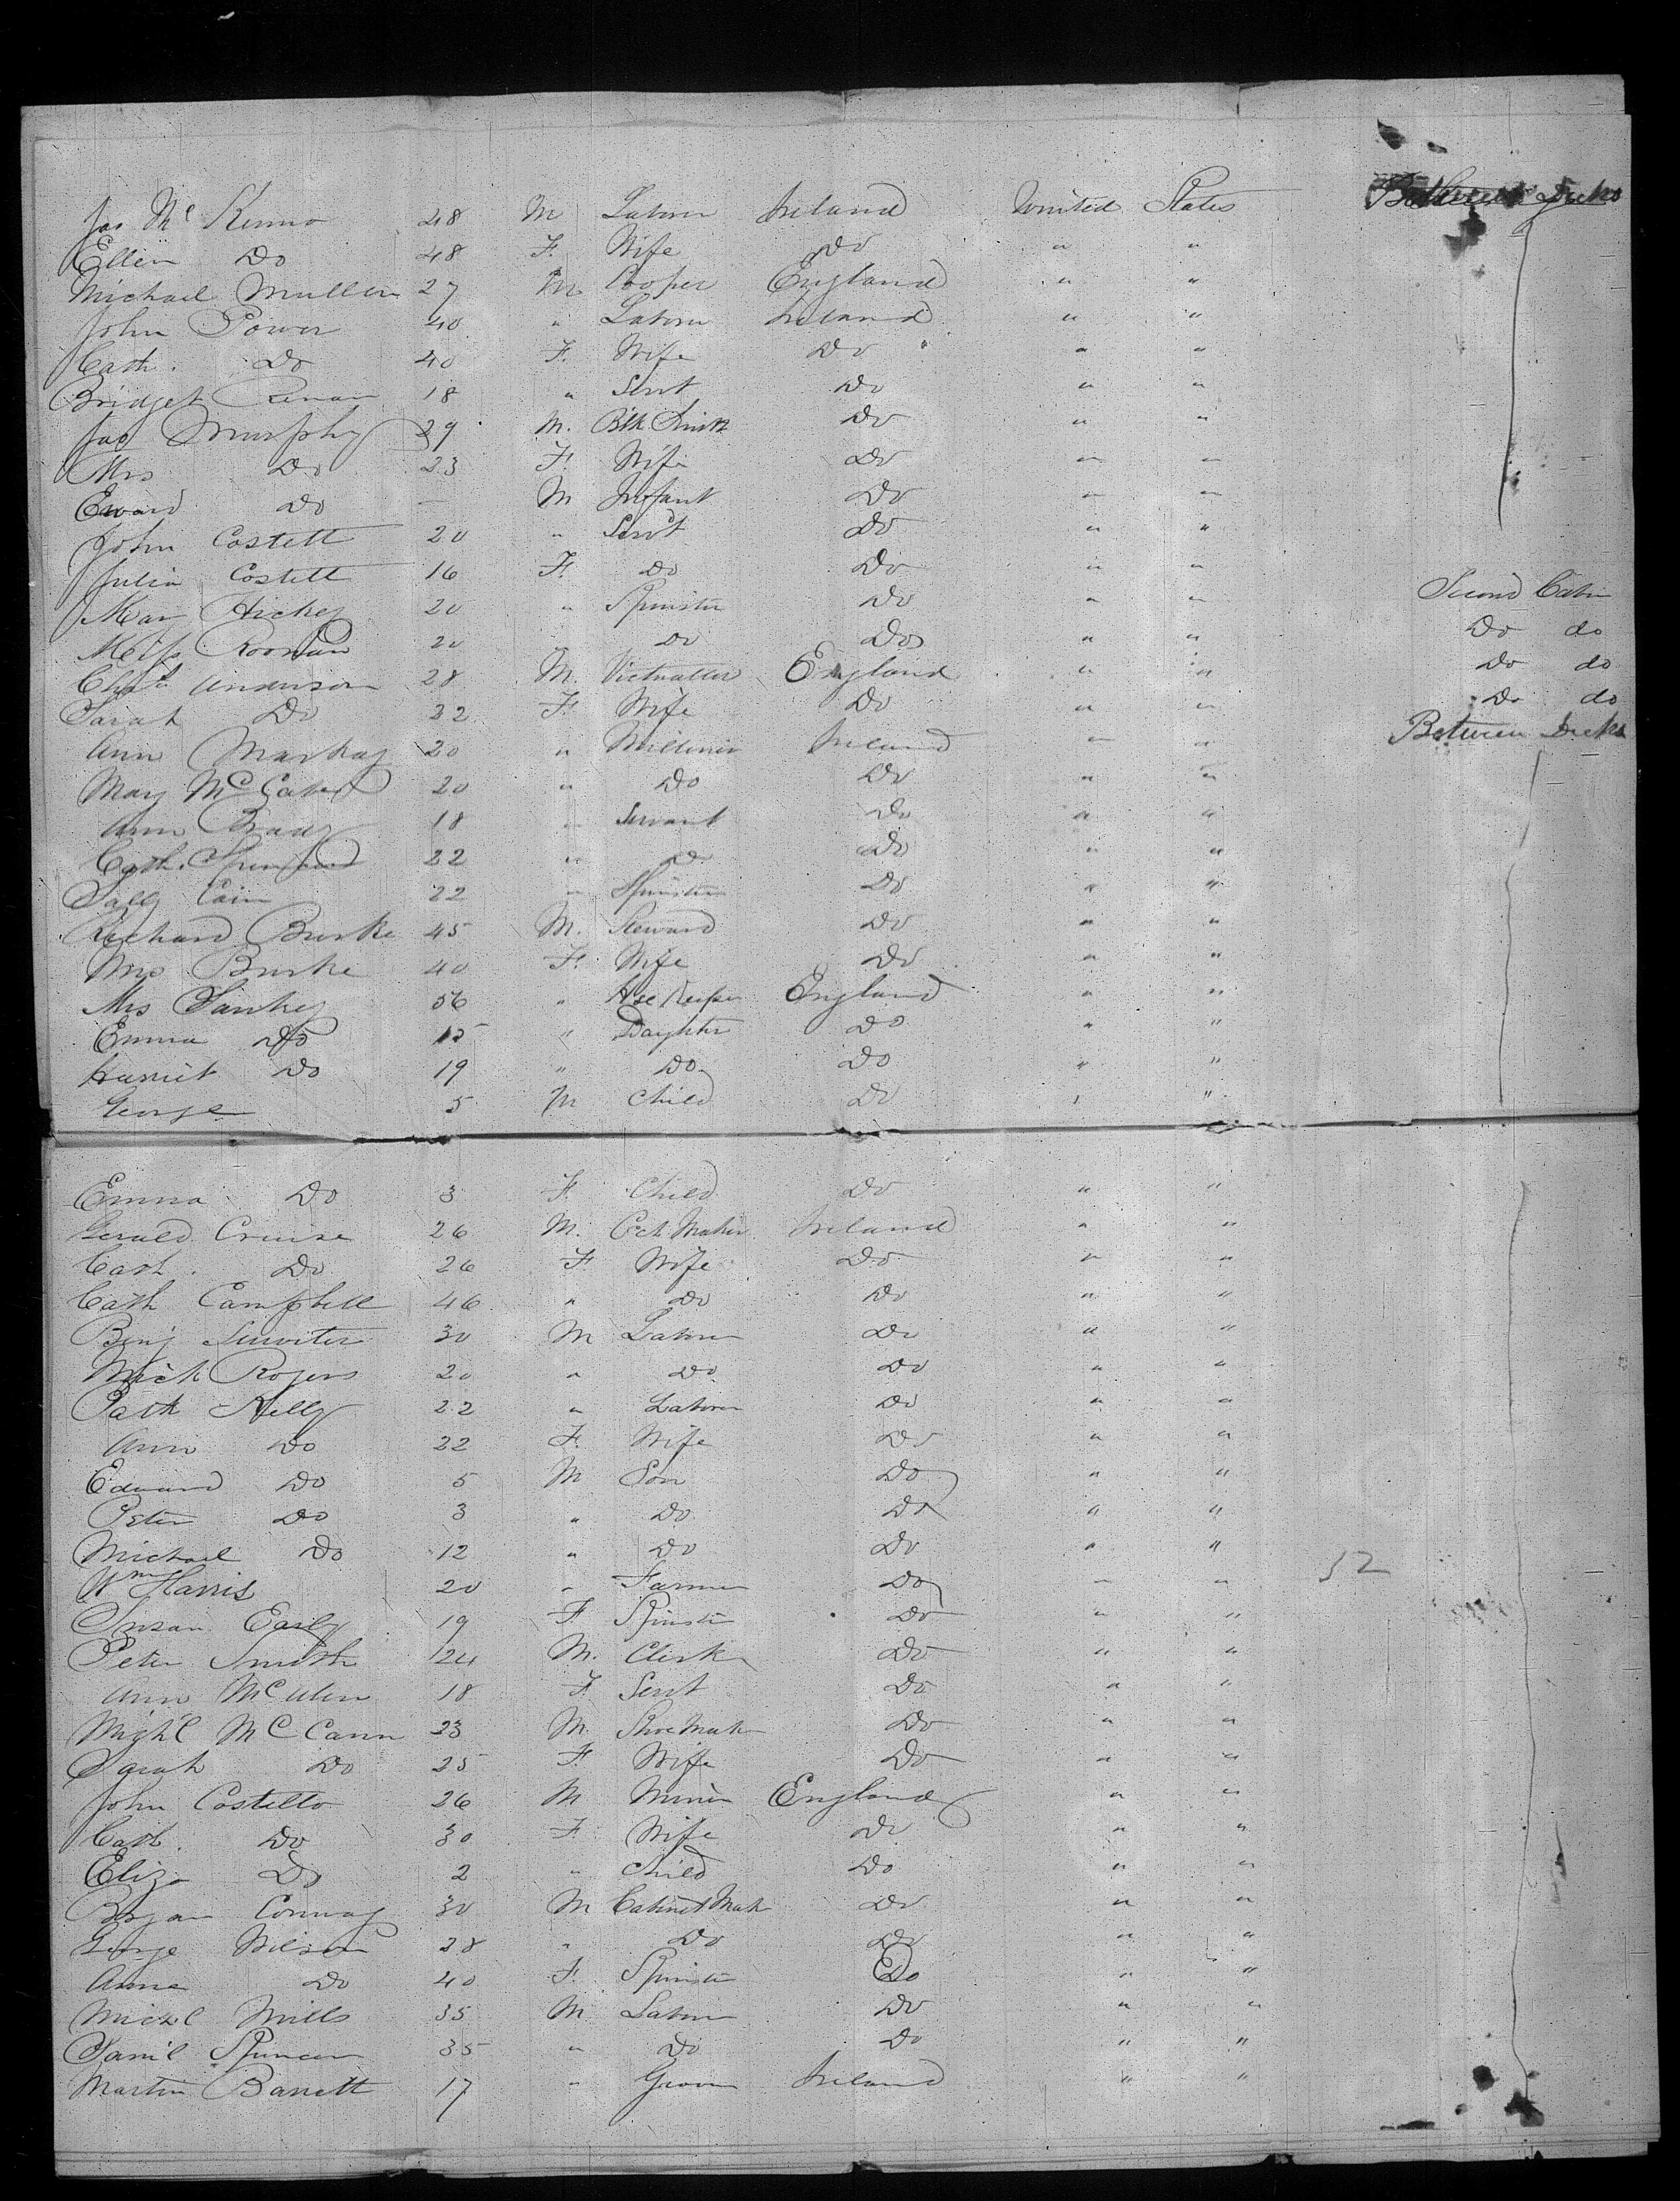 Jas Mc Kenna 48 M Laborer Ireland United States Between Decks
Ellen Do 48 F. Wife Do " "
Michael Mullen 27 M Cooper England " "
John Power 40 " Laborer Ireland " "
Cath. Do 40 F. Wife Do " "
Bridget 18 " Servt Do " "
Jas Murphy 29 M. Blk Smith Do " "
Mrs Do 23 F. Wife Do " "
Edward Do — M Infant Do " "
John Costell 20 " Servt Do " "
Julia Costell 16 F. Do Do " "
Mary Hickey 20 " Spinster Do " " Second Cabin
Miss 20 " Do Do " " Do do
Anderson 28 M. Victualler England " " Do do
Sarah Do 32 F. Wife Do " " Do do
Ann Markay 20 " Milliner Ireland " " Between Decks
Mary McCabe 20 " Do Do " "
Ann Brady 18 " Servant Do " "
Cath. 22 " Do Do " "
Sally Cain 22 " Spinster Do " "
Richard Burke 45 M. Steward Do " "
Mrs Burke 40 F. Wife Do " "
Mrs Sankey 56 " Hse Keeper England " "
Emma Do 15 " Daughter Do " "
Harriet Do 19 " Do Do " "
George 5 M Child Do " "
Emma Do 3 F. Child Do " "
Gerald Cruise 26 M. Cch Maker Ireland " "
Cath. Do 26 F Wife Do " "
Cath Campbell 46 " Do Do " "
Benj 30 M Laborer Do " "
Mich Rogers 20 " Do Do " "
Patk Kelly 22 " Laborer Do " "
Ann Do 22 F. Wife Do " "
Edward Do 5 M Son Do " "
Peter Do 3 " Do Do " "
Michael Do 12 " Do Do " "
Wm Harris 20 " Farmer Do " " 52
Susan Early 19 F. Spinster Do " "
Peter Smith 24 M. Clerk Do " "
Ann 18 F Servt Do " "
Migh'l McCann 23 M. Shoe Mak Do " "
Sarah Do 25 F. Wife Do " "
John Costello 26 M Miner England " "
Cath. Do 30 F. Wife Do " "
Eliza Do 2 " Child Do " "
Bryan Conway 30 M Cabinet Mak Do " "
George Wilson 28 " Do Do " "
Anne Do 40 F. Spinster Do " "
Mich'l Mills 35 M Laborer Do " "
Sam'l Spencer 35 " Do Do " "
Martin Barrett 17 " Groom Ireland " "